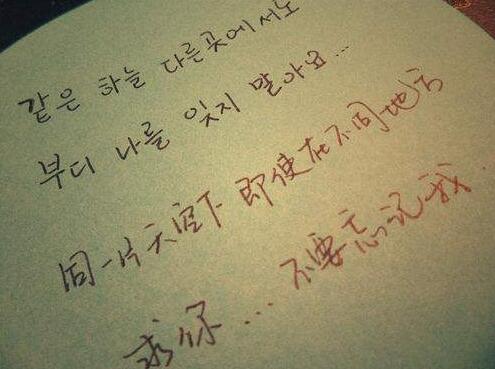 같은 하늘 다른곳에서도
부디 나를 잊지 말아요...
同一片天空下 即使在不同地方
求你... 不要忘记我